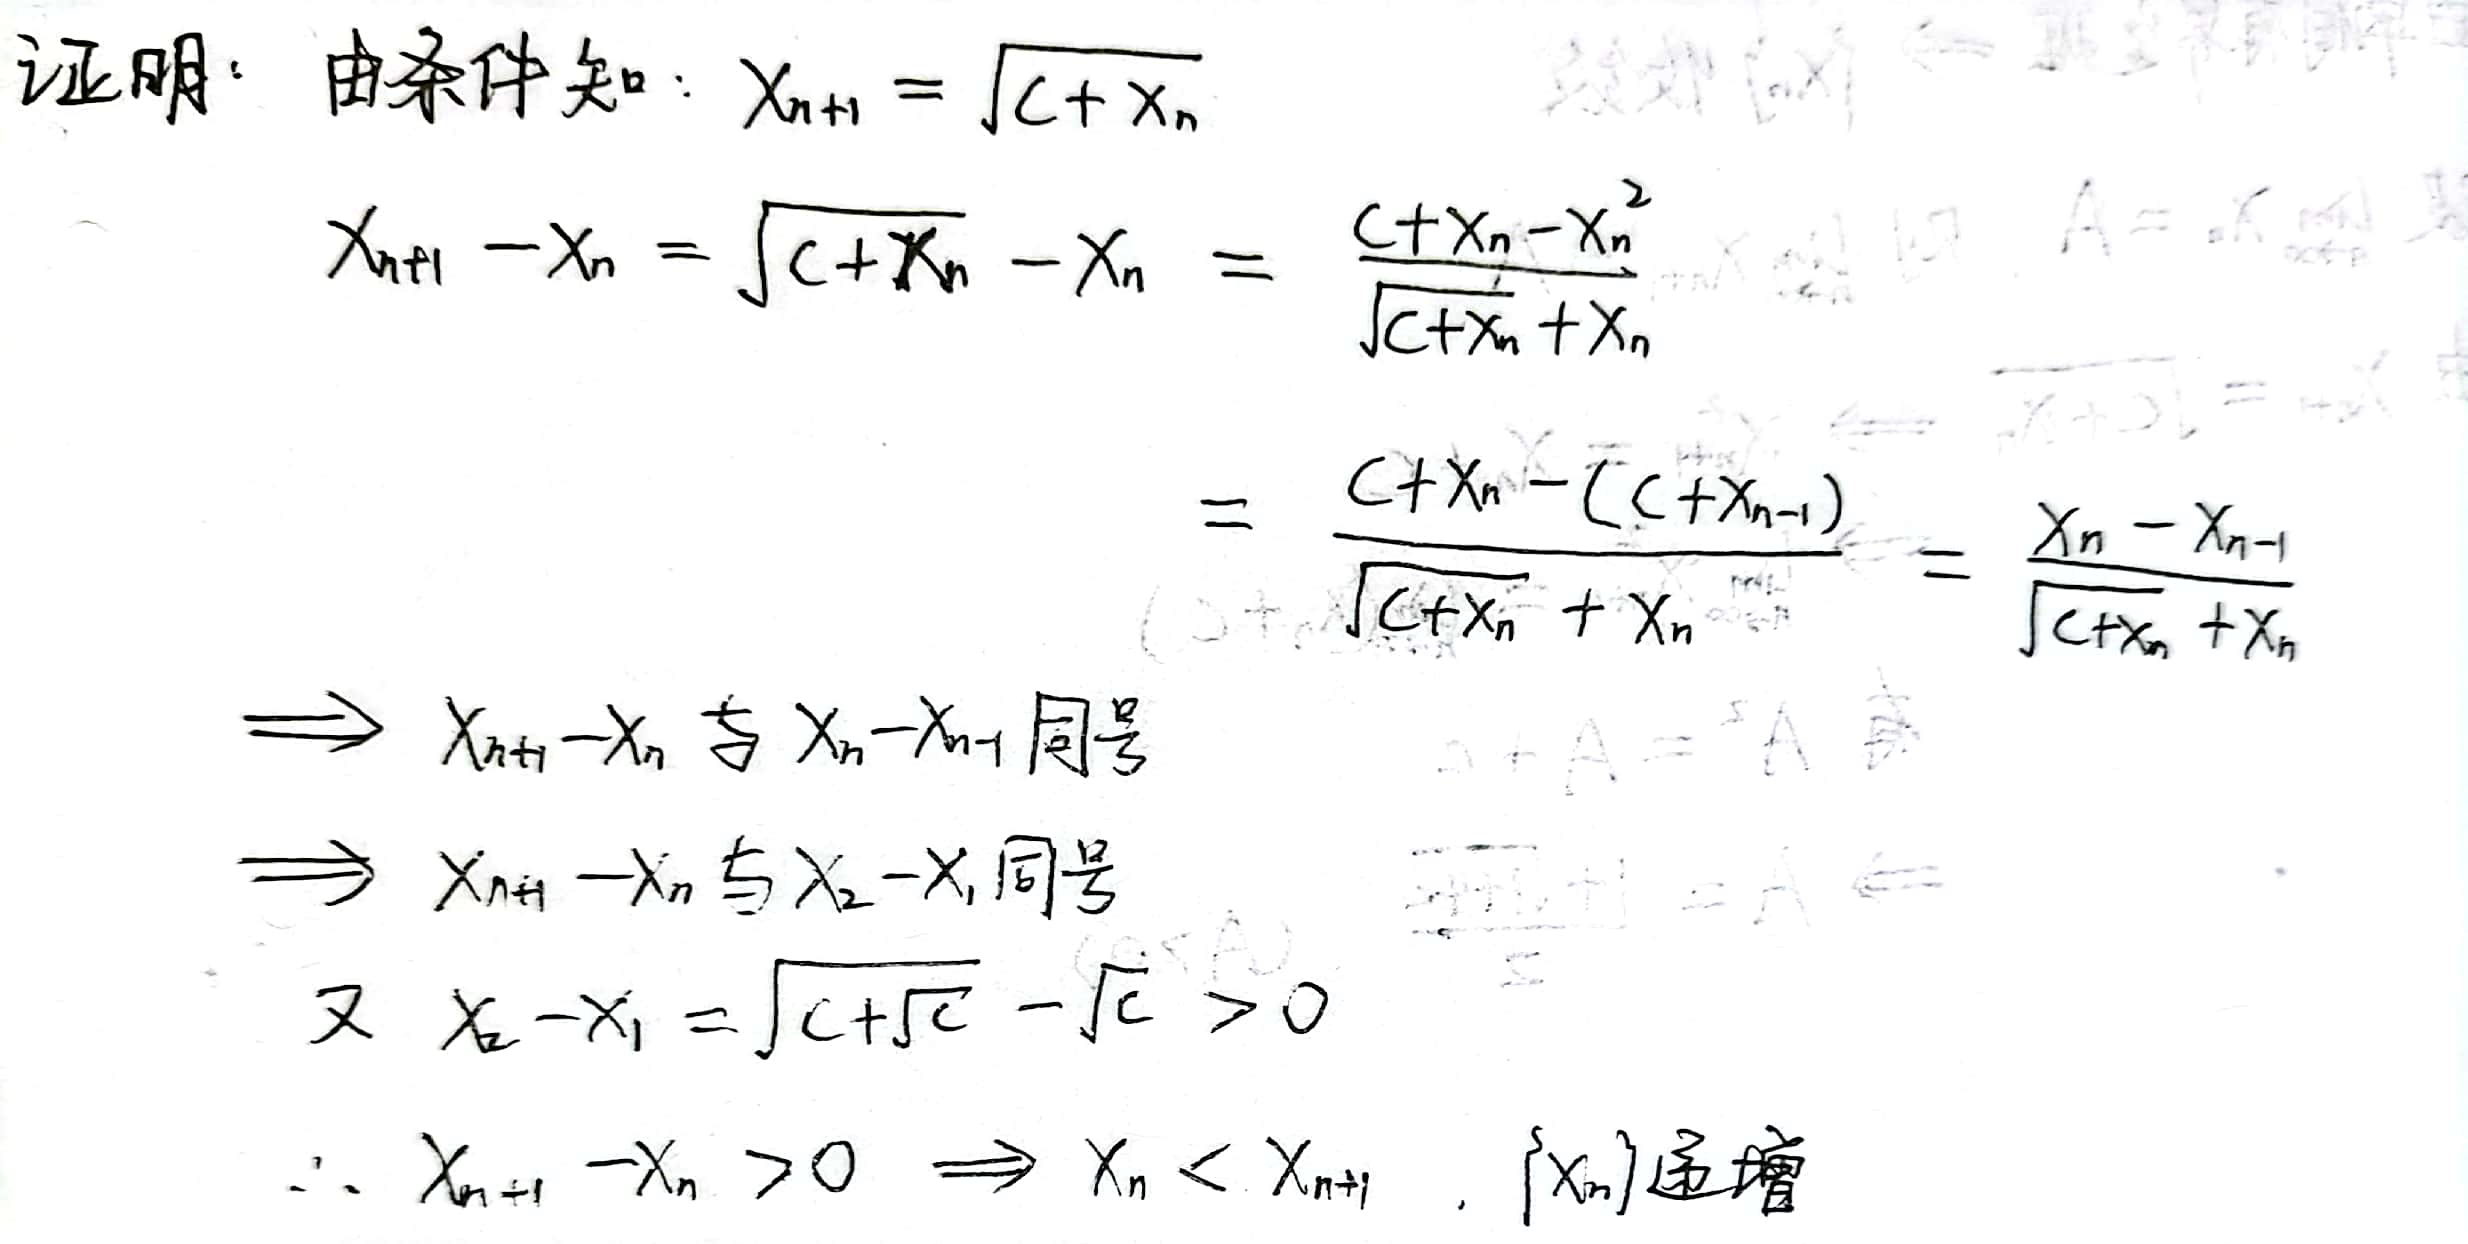 证明: 由条件知: Xn+1 = √(C+Xn)
Xn+1 − Xn = √(C+Xn) − Xn = (C+Xn−Xn²)/(√(C+Xn) + Xn)
= (C+Xn−(C+Xn−1))/(√(C+Xn) + Xn) = (Xn − Xn−1)/(√(C+Xn) + Xn)
⇒ Xn+1−Xn 与 Xn−Xn−1 同号
⇒ Xn+1−Xn 与 X2−X1 同号
又 X2−X1 = √(C+√C) − √C > 0
∴ Xn+1 − Xn > 0 ⇒ Xn < Xn+1 . {Xn}递增